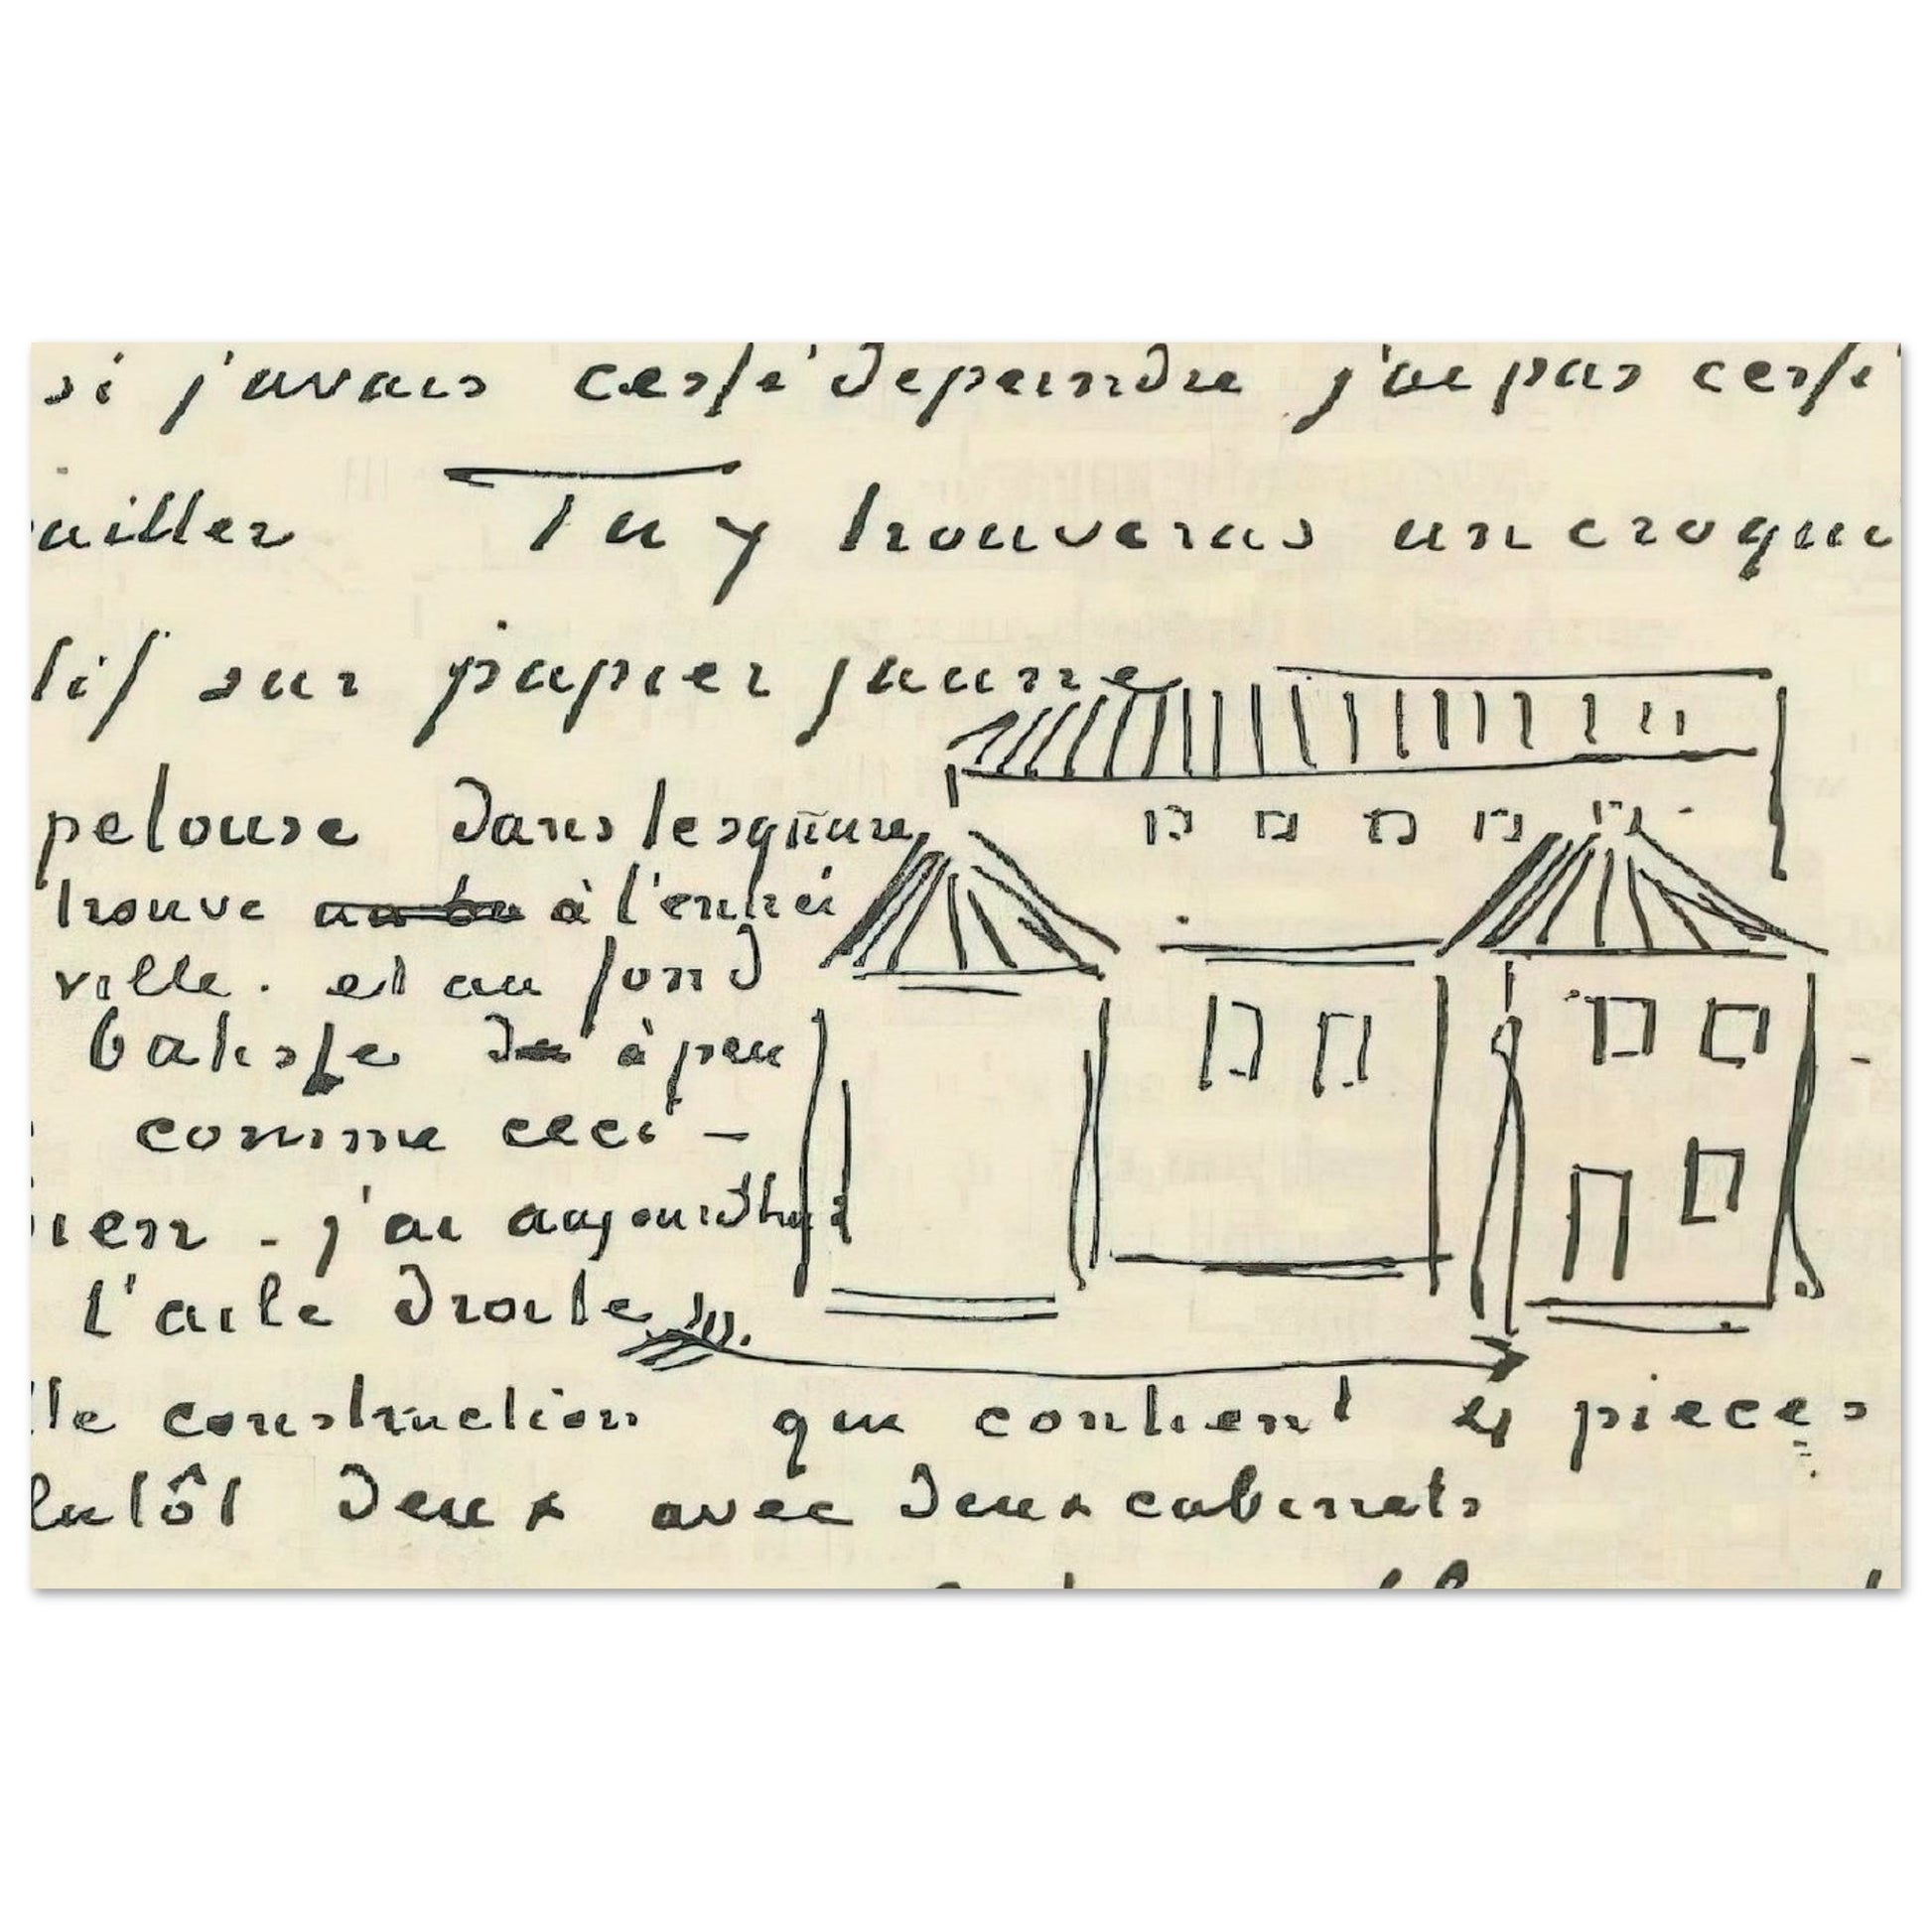 si j'avais cessé de peindre j'ai pas cessé
ailler Tu y trouveras un croqui
tif sur papier jaune
pelouse dans le square
trouve à l'entrée
ville. et au fond
batisse à peu
comme ceci –
ien - j'ai aujourdhui
l'aile droite
te construction qui contient 4 pieces
lutôt deux avec deux cabinets